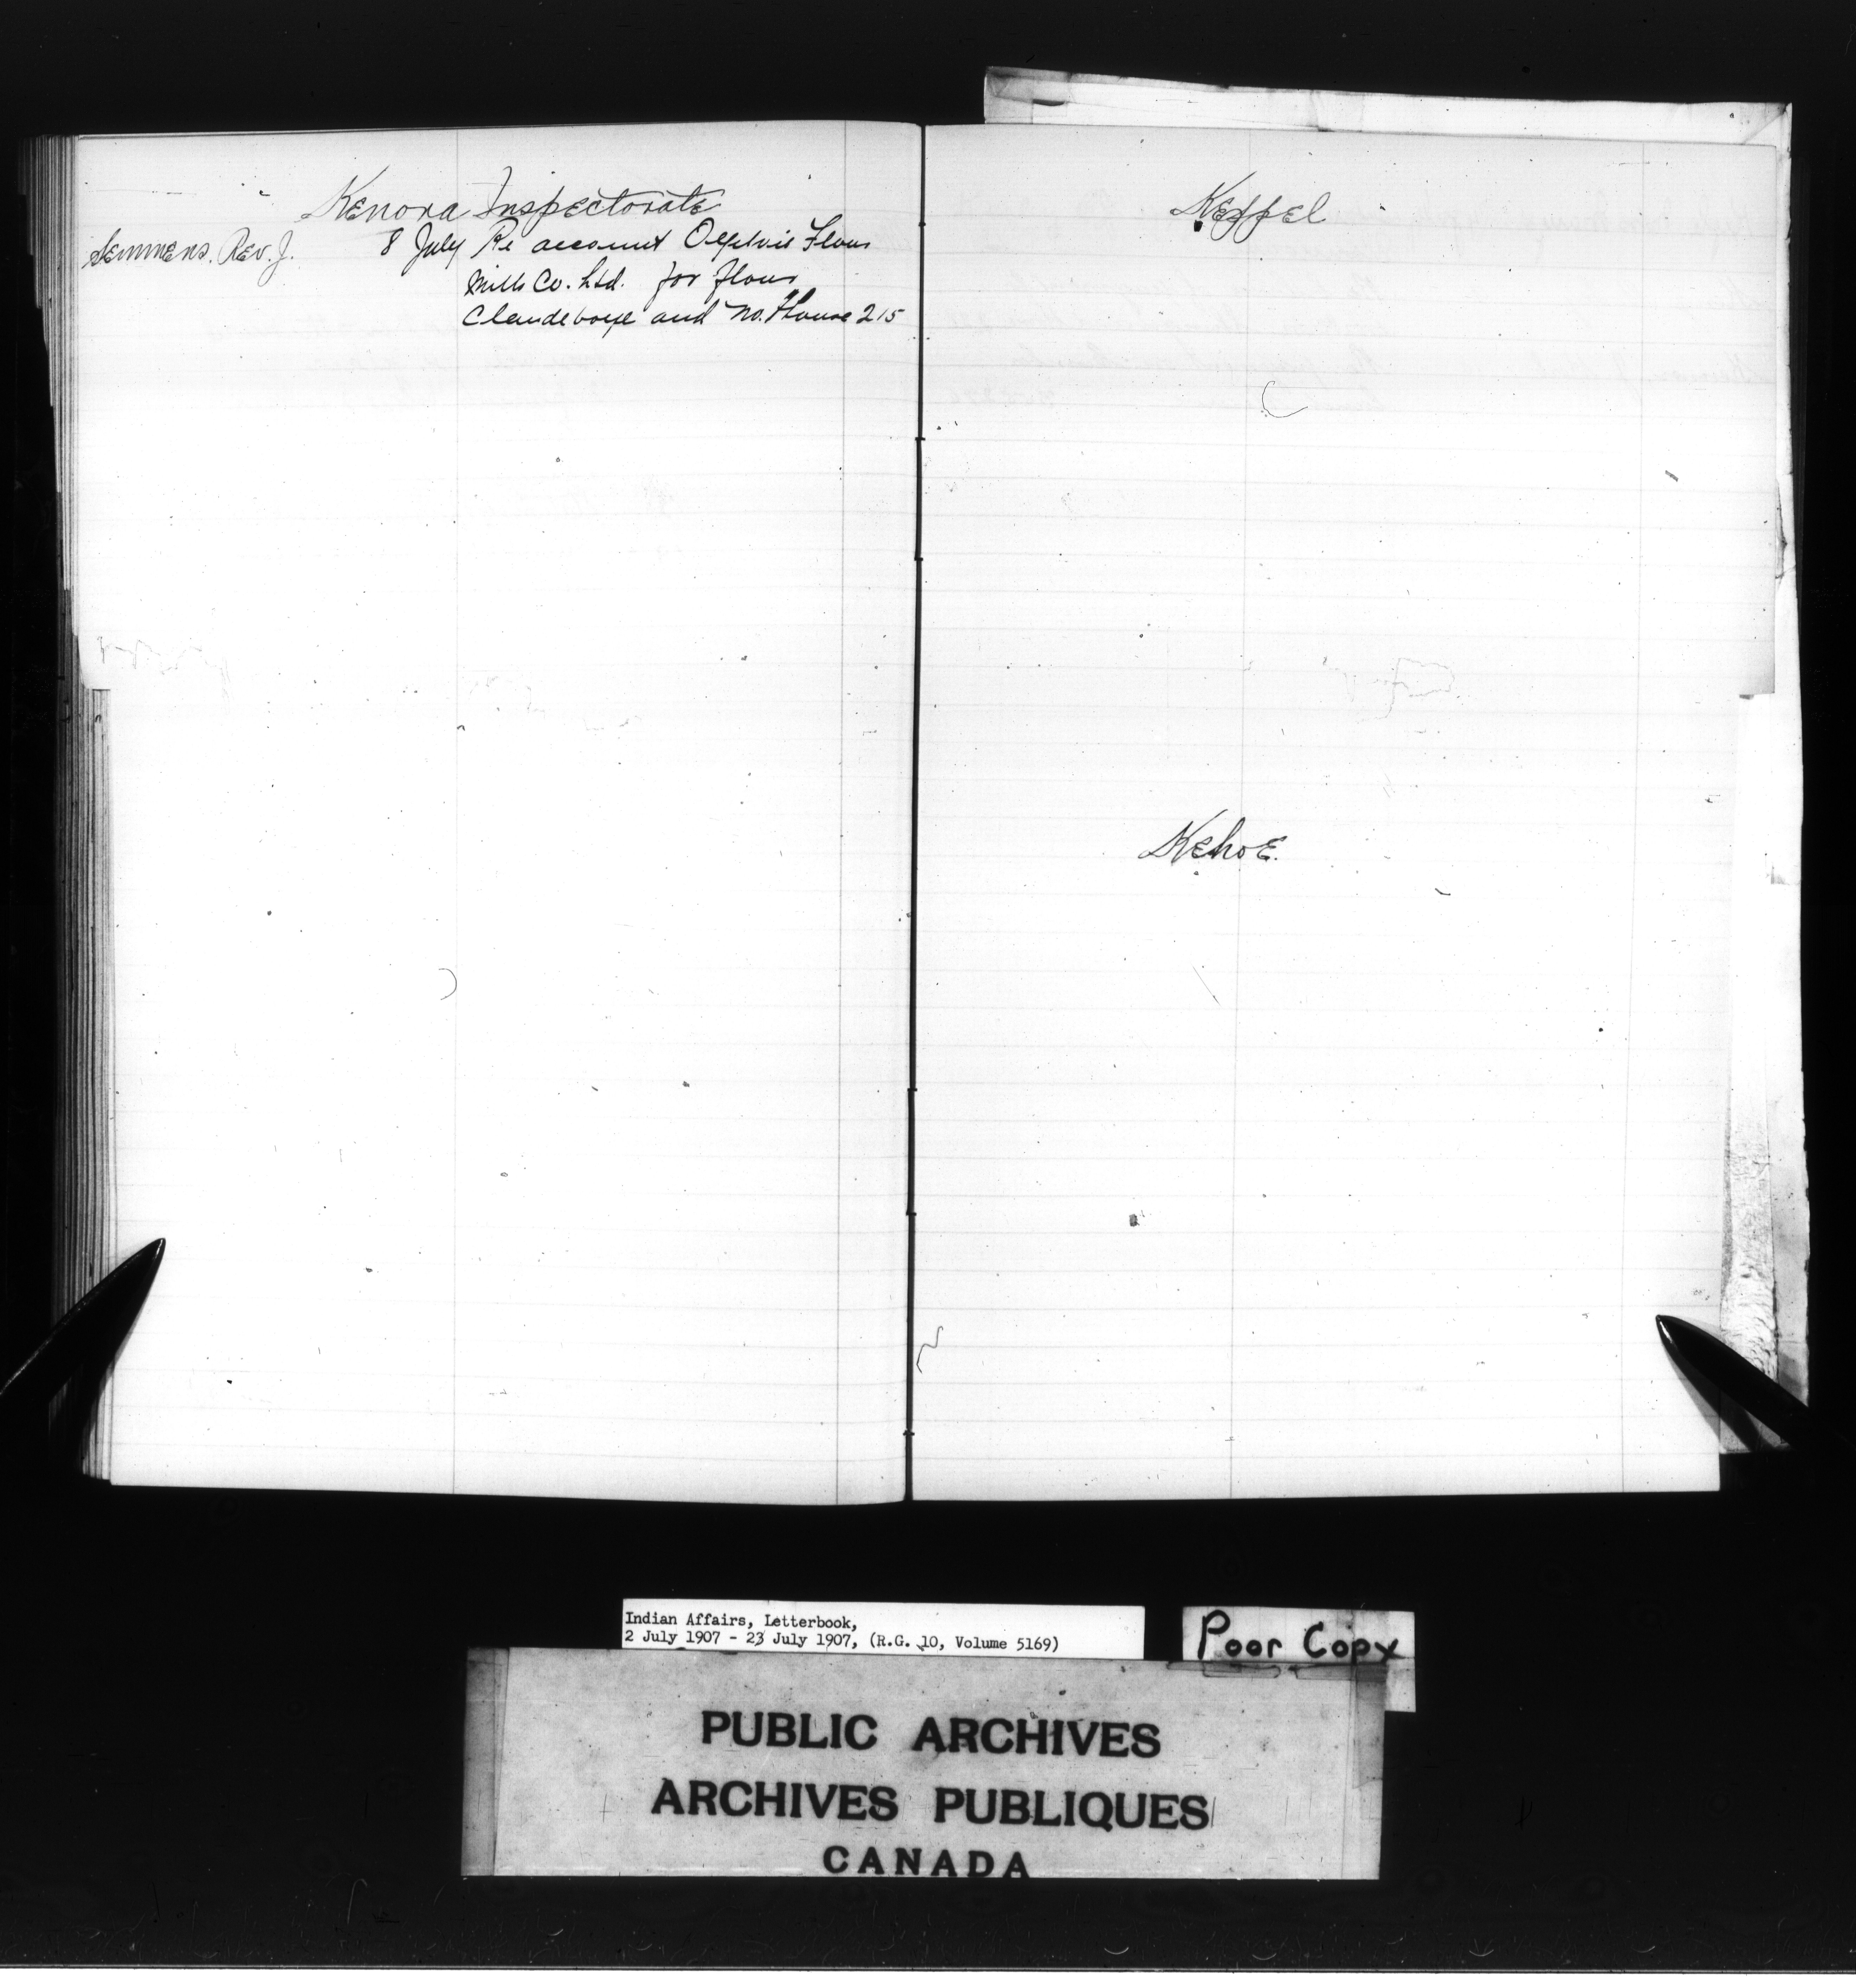 Kenora Inspectorate
Semmens. Rev. J. 8 July Re account Ogilvie Flour
Mills Co. Ltd. for flour
Clandeboye and No. House 215
Keppel
Kehoe.
Indian Affairs, Letterbook,
2 July 1907 - 23 July 1907, (R.G. 10, Volume 5169)
Poor Copy
PUBLIC ARCHIVES
ARCHIVES PUBLIQUES
CANADA